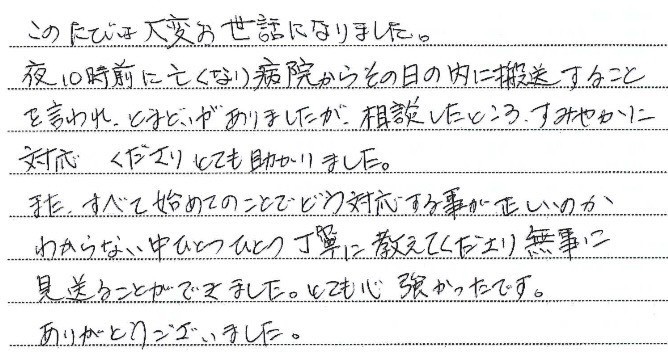 このたびは大変お世話になりました。
夜10時前に亡くなり病院からその日の内に搬送すること
を言われ、とまどいがありましたが、相談したところ、すみやかに
対応 くださりとても助かりました。
また、すべて始めてのことでどう対応する事が正しいのか
わからない中ひとつひとつ丁寧に教えてくださり無事に
見送ることができました。とても心強かったです。
ありがとうございました。